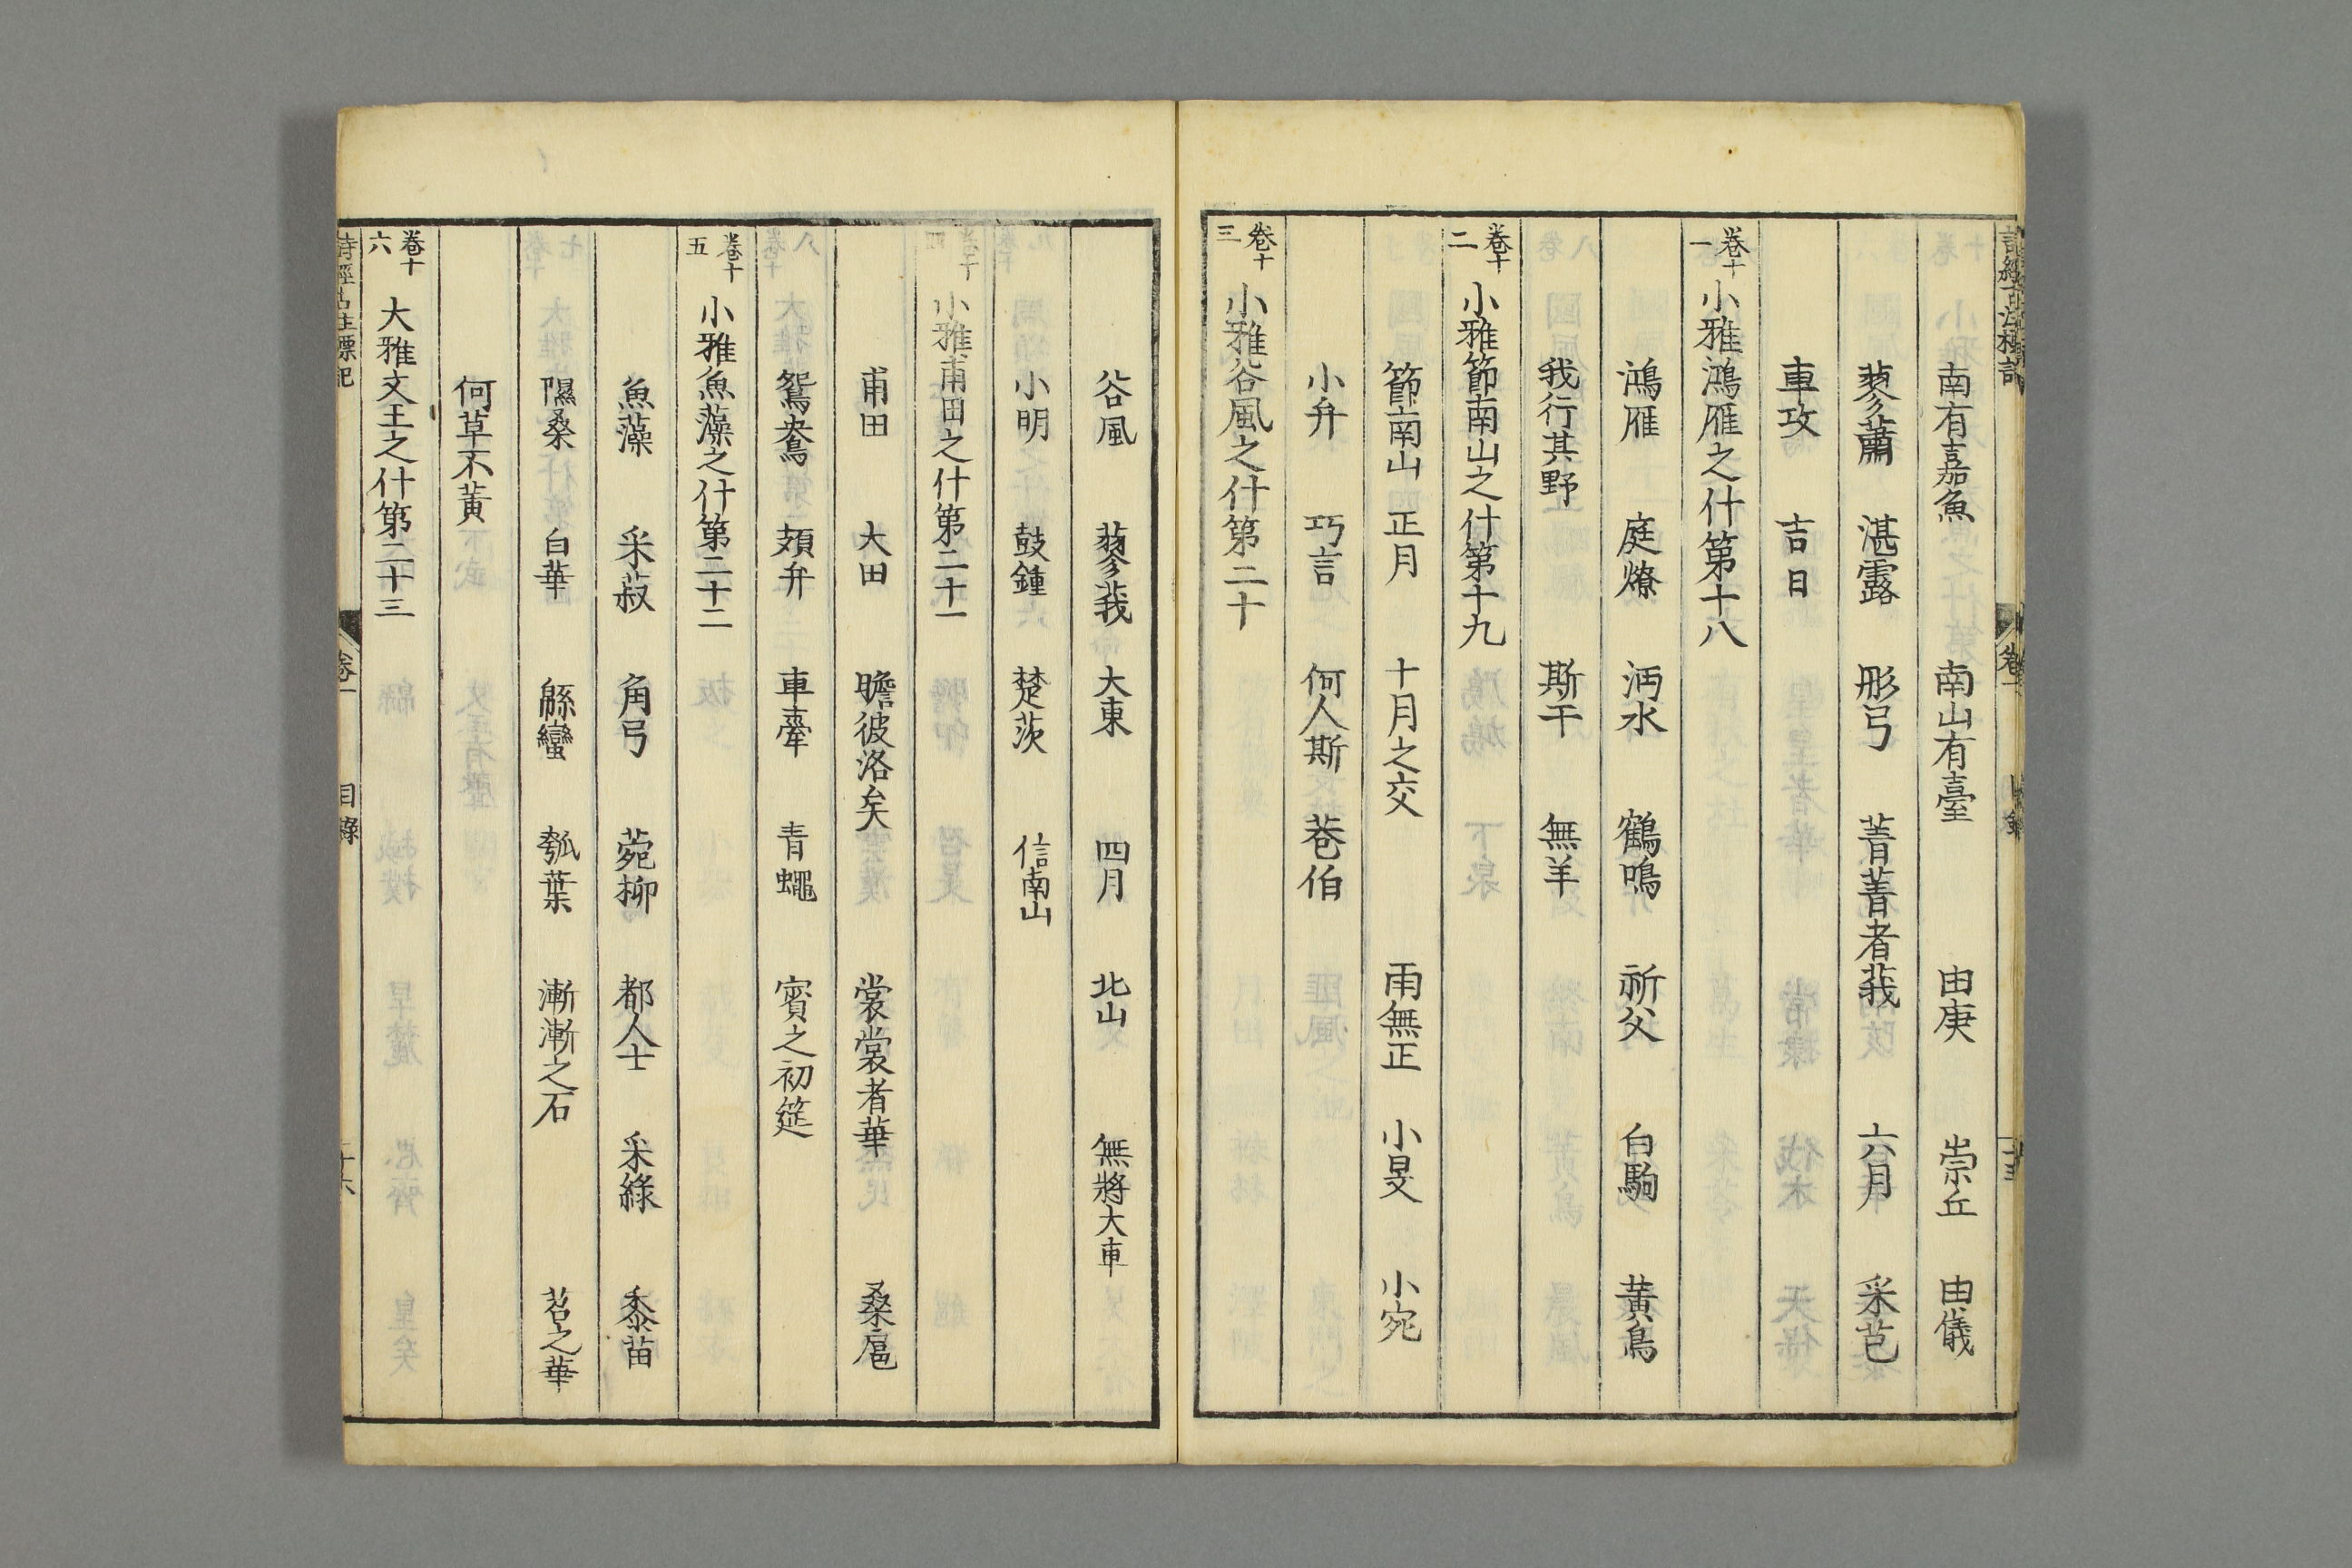 南有嘉魚 南山有臺 由庚 崇丘 由儀
蓼蕭 湛露 彤弓 菁菁者莪 六月 采芑
車攻 吉日
卷十一 小雅鴻雁之什第十八
鴻雁 庭燎 沔水 鶴鳴 祈父 白駒 黃鳥
我行其野 斯干 無羊
卷十二 小雅節南山之什第十九
節南山 正月 十月之交 雨無正 小旻 小宛
小弁 巧言 何人斯 巷伯
卷十三 小雅谷風之什第二十
谷風 蓼莪 大東 四月 北山 無將大車
小明 鼓鍾 楚茨 信南山
卷十四 小雅甫田之什第二十一
甫田 大田 瞻彼洛矣 裳裳者華 桑扈
鴛鴦 頍弁 車舝 青蠅 賓之初筵
卷十五 小雅魚藻之什第二十二
魚藻 采菽 角弓 菀柳 都人士 采綠 黍苗
隰桑 白華 緜蠻 瓠葉 漸漸之石 苕之華
何草不黃
卷十六 大雅文王之什第二十三
詩經古注標記 卷一 目錄